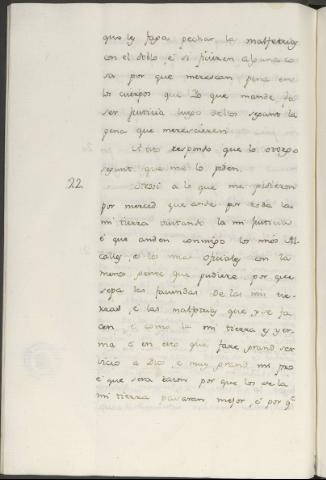 que les faga pechar la malfetria
con el doblo e si ficieren alguna co
sa por que merescan pena en
los cuerpos que Yo que mande fa
ser justicia luego dellos segunt la
pena que merescieren
A esto respondo que lo otorgo
segunt que me lo piden.
22 Otrossi a lo que me pidieron
por merced que ande por toda la
mi tierra visitando la mi justicia
e que anden conmigo los mios Al
calles e los mas oficiales con la
menos gente que pudiere por que
sepa las faciendas de las mis tie
rras e las malfetrias que y se fa
cen e como la mi tierra se yer
ma e en esto que fare grand ser
vicio a Dios e muy grand mi pro
e que sera razon por que los de la
mi tierra pasaran mejor e por q.e